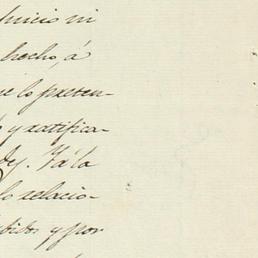 juicio ni
hecho, á
lo preten-
y ratifica-
Y á la
lo relacio-
y por